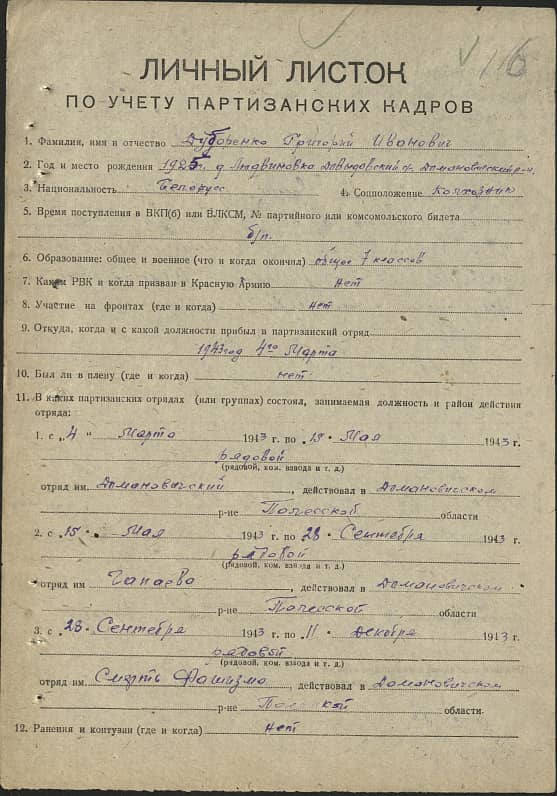 116
ЛИЧНЫЙ ЛИСТОК
ПО УЧЕТУ ПАРТИЗАНСКИХ КАДРОВ
1. Фамилия, имя и отчество Дуборенко Григорий Иванович
2. Год и место рождения 1925 г. д Людвиновка Домановичский р-н
3. Национальность Белорусс 4. Соцположение Колхозник
5. Время поступления в ВКП(б) или ВЛКСМ, № партийного или комсомольского билета
б/п.
6. Образование: общее и военное (что и когда окончил) общее 7 классов
7. Каким РВК и когда призван в Красную Армию нет
8. Участие на фронтах (где и когда) нет
9. Откуда, когда и с какой должности прибыл в партизанский отряд
1943 год 4го Марта
10. Был ли в плену (где и когда) нет
11. В каких партизанских отрядах (или группах) состоял, занимаемая должность и район действия
отряда:
1. с „4 “ Марта 1943 г. по 15 Мая 1943 г.
рядовой
(рядовой, ком. взвода и т. д.)
отряд им. Домановичский, действовал в Домановичском
р-не Полесской области
2. с 15 Мая 1943 г. по 28 Сентебря 1943 г.
рядовой
(рядовой, ком. взвода и т. д.)
отряд им Чапаева, действовал в Домановичском
р-не Полесской области
3. с 28 Сентебря 1943 г. по 11 Декабря 1943 г.
рядовой
(рядовой, ком. взвода и т. д.)
отряд им. Смерть Фашизмо, действовал в Домановичском
р-не области.
12. Ранения и контузии (где и когда) нет